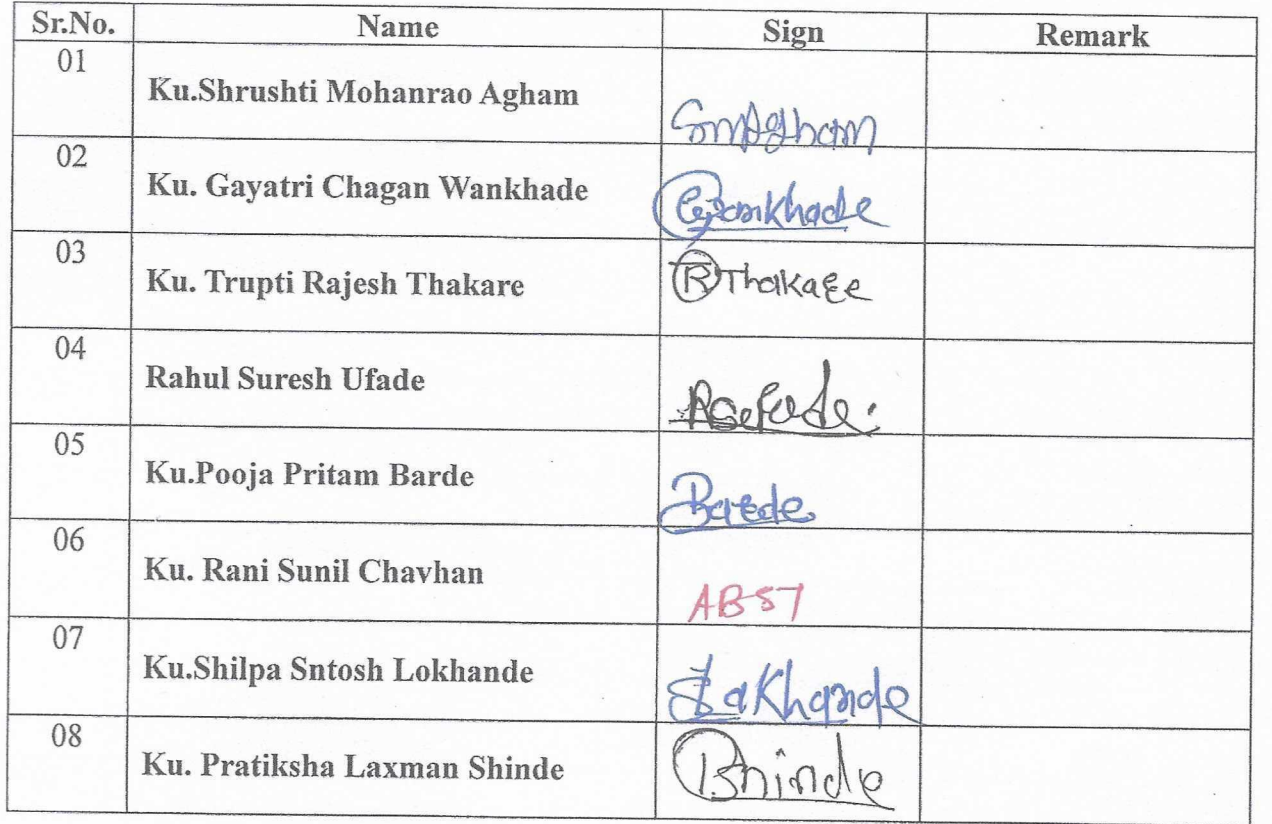 Sr.No. Name Sign Remark
01 Ku.Shrushti Mohanrao Agham SmAgham
02 Ku. Gayatri Chagan Wankhade Gwankhade
03 Ku. Trupti Rajesh Thakare RThakare
04 Rahul Suresh Ufade
05 Ku.Pooja Pritam Barde Barde
06 Ku. Rani Sunil Chavhan ABST
07 Ku.Shilpa Sntosh Lokhande
08 Ku. Pratiksha Laxman Shinde Pshinde